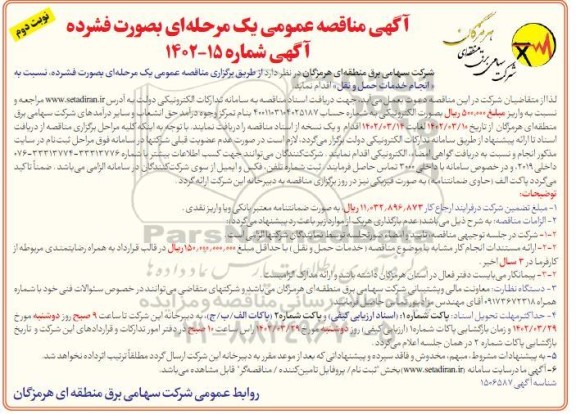 نوبت دوم
آگهی مناقصه عمومی یک مرحله‌ای بصورت فشرده
آگهی شماره ۱۵-۱۴۰۲
هرمزگان
شرکت سهامی برق منطقه‌ای
شرکت سهامی برق منطقه‌ای هرمزگان در نظر دارد از طریق برگزاری مناقصه عمومی یک مرحله‌ای بصورت فشرده، نسبت به
« انجام خدمات حمل و نقل» اقدام نماید
لذا از متقاضیان شرکت در این مناقصه دعوت بعمل می‌آید جهت دریافت اسناد مناقصه به سامانه تدارکات الکترونیکی دولت به آدرس www.setadiran.ir مراجعه و
نسبت به واریز مبلغ ۵۰۰,۰۰۰ ریال بصورت الکترونیکی به شماره حساب بنام تمرکز وجوه درآمد حق انشعاب و سایر درآمدهای شرکت سهامی برق
منطقه‌ای هرمزگان از تاریخ ۱۴۰۲/۰۳/۱۰ لغایت ۱۴۰۲/۰۳/۱۴ اقدام و یک نسخه از اسناد مناقصه را دریافت نمایند. با توجه به اینکه کلیه مراحل برگزاری مناقصه از دریافت
اسناد تا ارائه پیشنهاد از طریق سامانه تدارکات الکترونیکی دولت برگزار می‌گردد، لازم است در صورت عدم عضویت قبلی شرکتها در سامانه فوق مراحل ثبت نام در سایت
مذکور انجام و نسبت به دریافت گواهی امضاء الکترونیکی اقدام نمایند. شرکت‌کنندگان می‌توانند جهت کسب اطلاعات بیشتر با شماره ۳۳۳۱۳۷۷۶-۰۷۶
داخلی ۲۰۱۹، و در خصوص سامانه با داخلی ۳۰۰۰ تماس حاصل فرمایند. ثبت شماره تلفن، فکس و ایمیل از سوی شرکت‌کنندگان در سامانه الزامی می‌باشد. ضمناً تاکید
می‌گردد پاکت الف (حاوی ضمانتنامه) به صورت فیزیکی نیز در روز برگزاری مناقصه به دبیرخانه این شرکت ارائه گردد.
توضیحات:
۱- مبلغ تضمین شرکت در فرایند ارجاع کار ۱۱,۰۳۲,۸۹۶,۸۷۳ ریال، به صورت ضمانتنامه معتبر بانکی و یا واریز نقدی.
۲- الزامات مناقصه: به شرح ذیل می‌باشد؛ عدم بارگذاری هر یک از موارد زیر باعث رد پیشنهاد می‌گردد:
۲-۱- شرکت در جلسه توجیهی مناقصه
۲-۲- ارائه مستندات انجام کار مشابه با موضوع مناقصه (خدمات حمل و نقل) با حداقل مبلغ ۱۵۰,۰۰۰,۰۰۰,۰۰۰ ریال در قالب قرارداد به همراه رضایتمندی مربوطه از
کارفرما در ۳ سال اخیر
۲-۳- پیمانکار می‌بایست دفتر فعال در استان هرمزگان داشته باشد و ارائه مدارک الزامیست.
۳- دستگاه نظارت: معاونت مالی و پشتیبانی شرکت سهامی برق منطقه‌ای هرمزگان می‌باشد و شرکتهای متقاضی می‌توانند در خصوص سئوالات فنی خود با شماره
همراه ۰۹۱۷۳۶۷۲۳۱۸ آقای مهندس
۴- حداکثر مهلت تحویل اسناد: پاکت شماره۱: (اسناد ارزیابی کیفی) و پاکت شماره۲ (پاکات الف/ب/ج)، به دبیرخانه این شرکت تا ساعت ۹ صبح روز دوشنبه مورخ
۱۴۰۲/۰۳/۲۹ و زمان بازگشایی پاکات شماره۱ (ارزیابی کیفی) روز دوشنبه مورخ ۱۴۰۲/۰۳/۲۹ راس ساعت ۱۰ صبح در دفتر امور تدارکات و قراردادهای این شرکت و تاریخ
بازگشایی پاکات شماره ۲ در همان جلسه اعلام می‌گردد.
۵- به پیشنهادات مشروط، مبهم، مخدوش و فاقد سپرده و پیشنهاداتی که بعد از موعد مقرر به دبیرخانه این شرکت ارسال گردد مطلقاً ترتیب اثر داده نخواهد شد.
۶- آگهی ما در سایت سامانه (www.setadiran.ir) بخش "ثبت نام / پروفایل تامین کننده / مناقصه‌گر" قابل مشاهده می‌باشد.
شناسه آگهی ۱۵۰۶۵۸۷
روابط عمومی شرکت سهامی برق منطقه ای هرمزگان
ParsNamadData